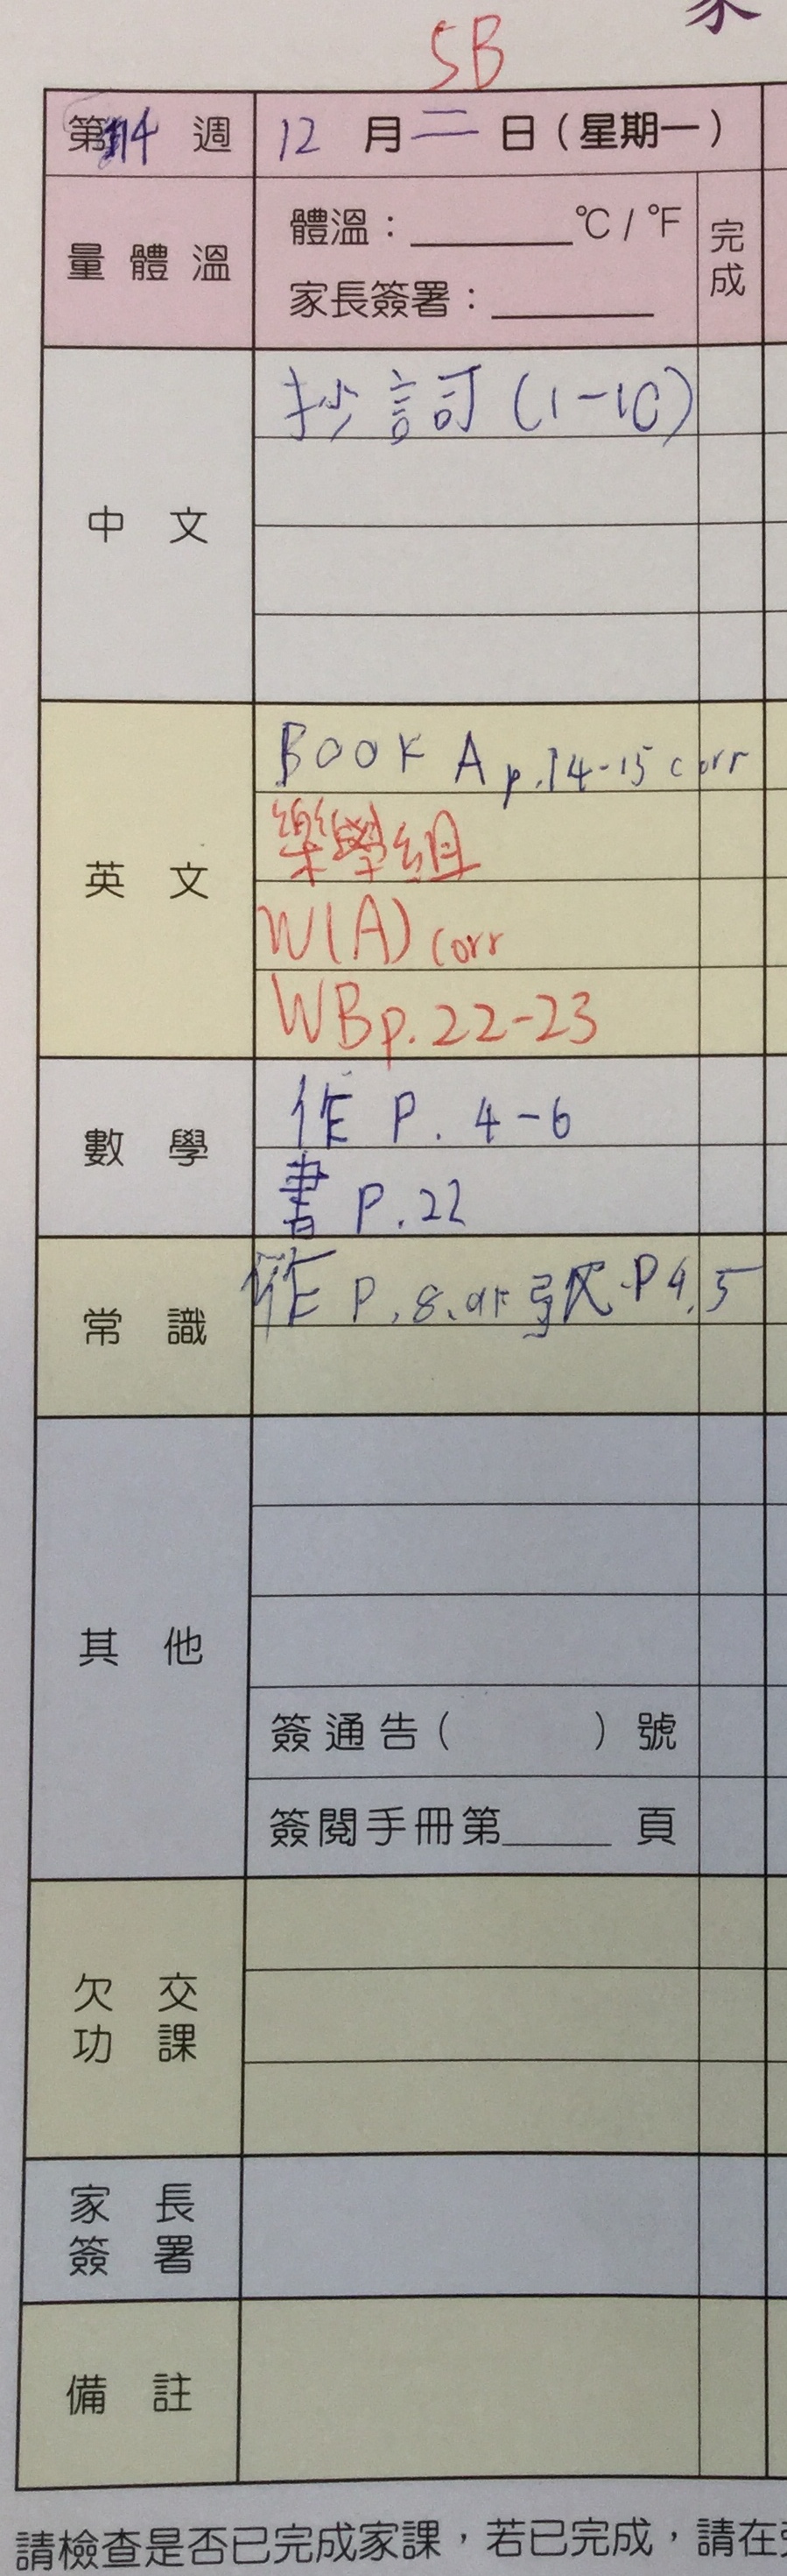 家
5B
第14週 12月二日(星期一)
量體溫
體溫：______°C / °F
家長簽署：______
完成
中文
抄詞(1-10)
英文
BOOK A p.14-15 corr
樂學組
W(A) corr
WB p.22-23
數學
作 P. 4-6
書 P.22
常識
作 P.8、 P4,5
其他
簽通告( )號
簽閱手冊第____頁
欠交功課
家長簽署
備註
請檢查是否已完成家課，若已完成，請在